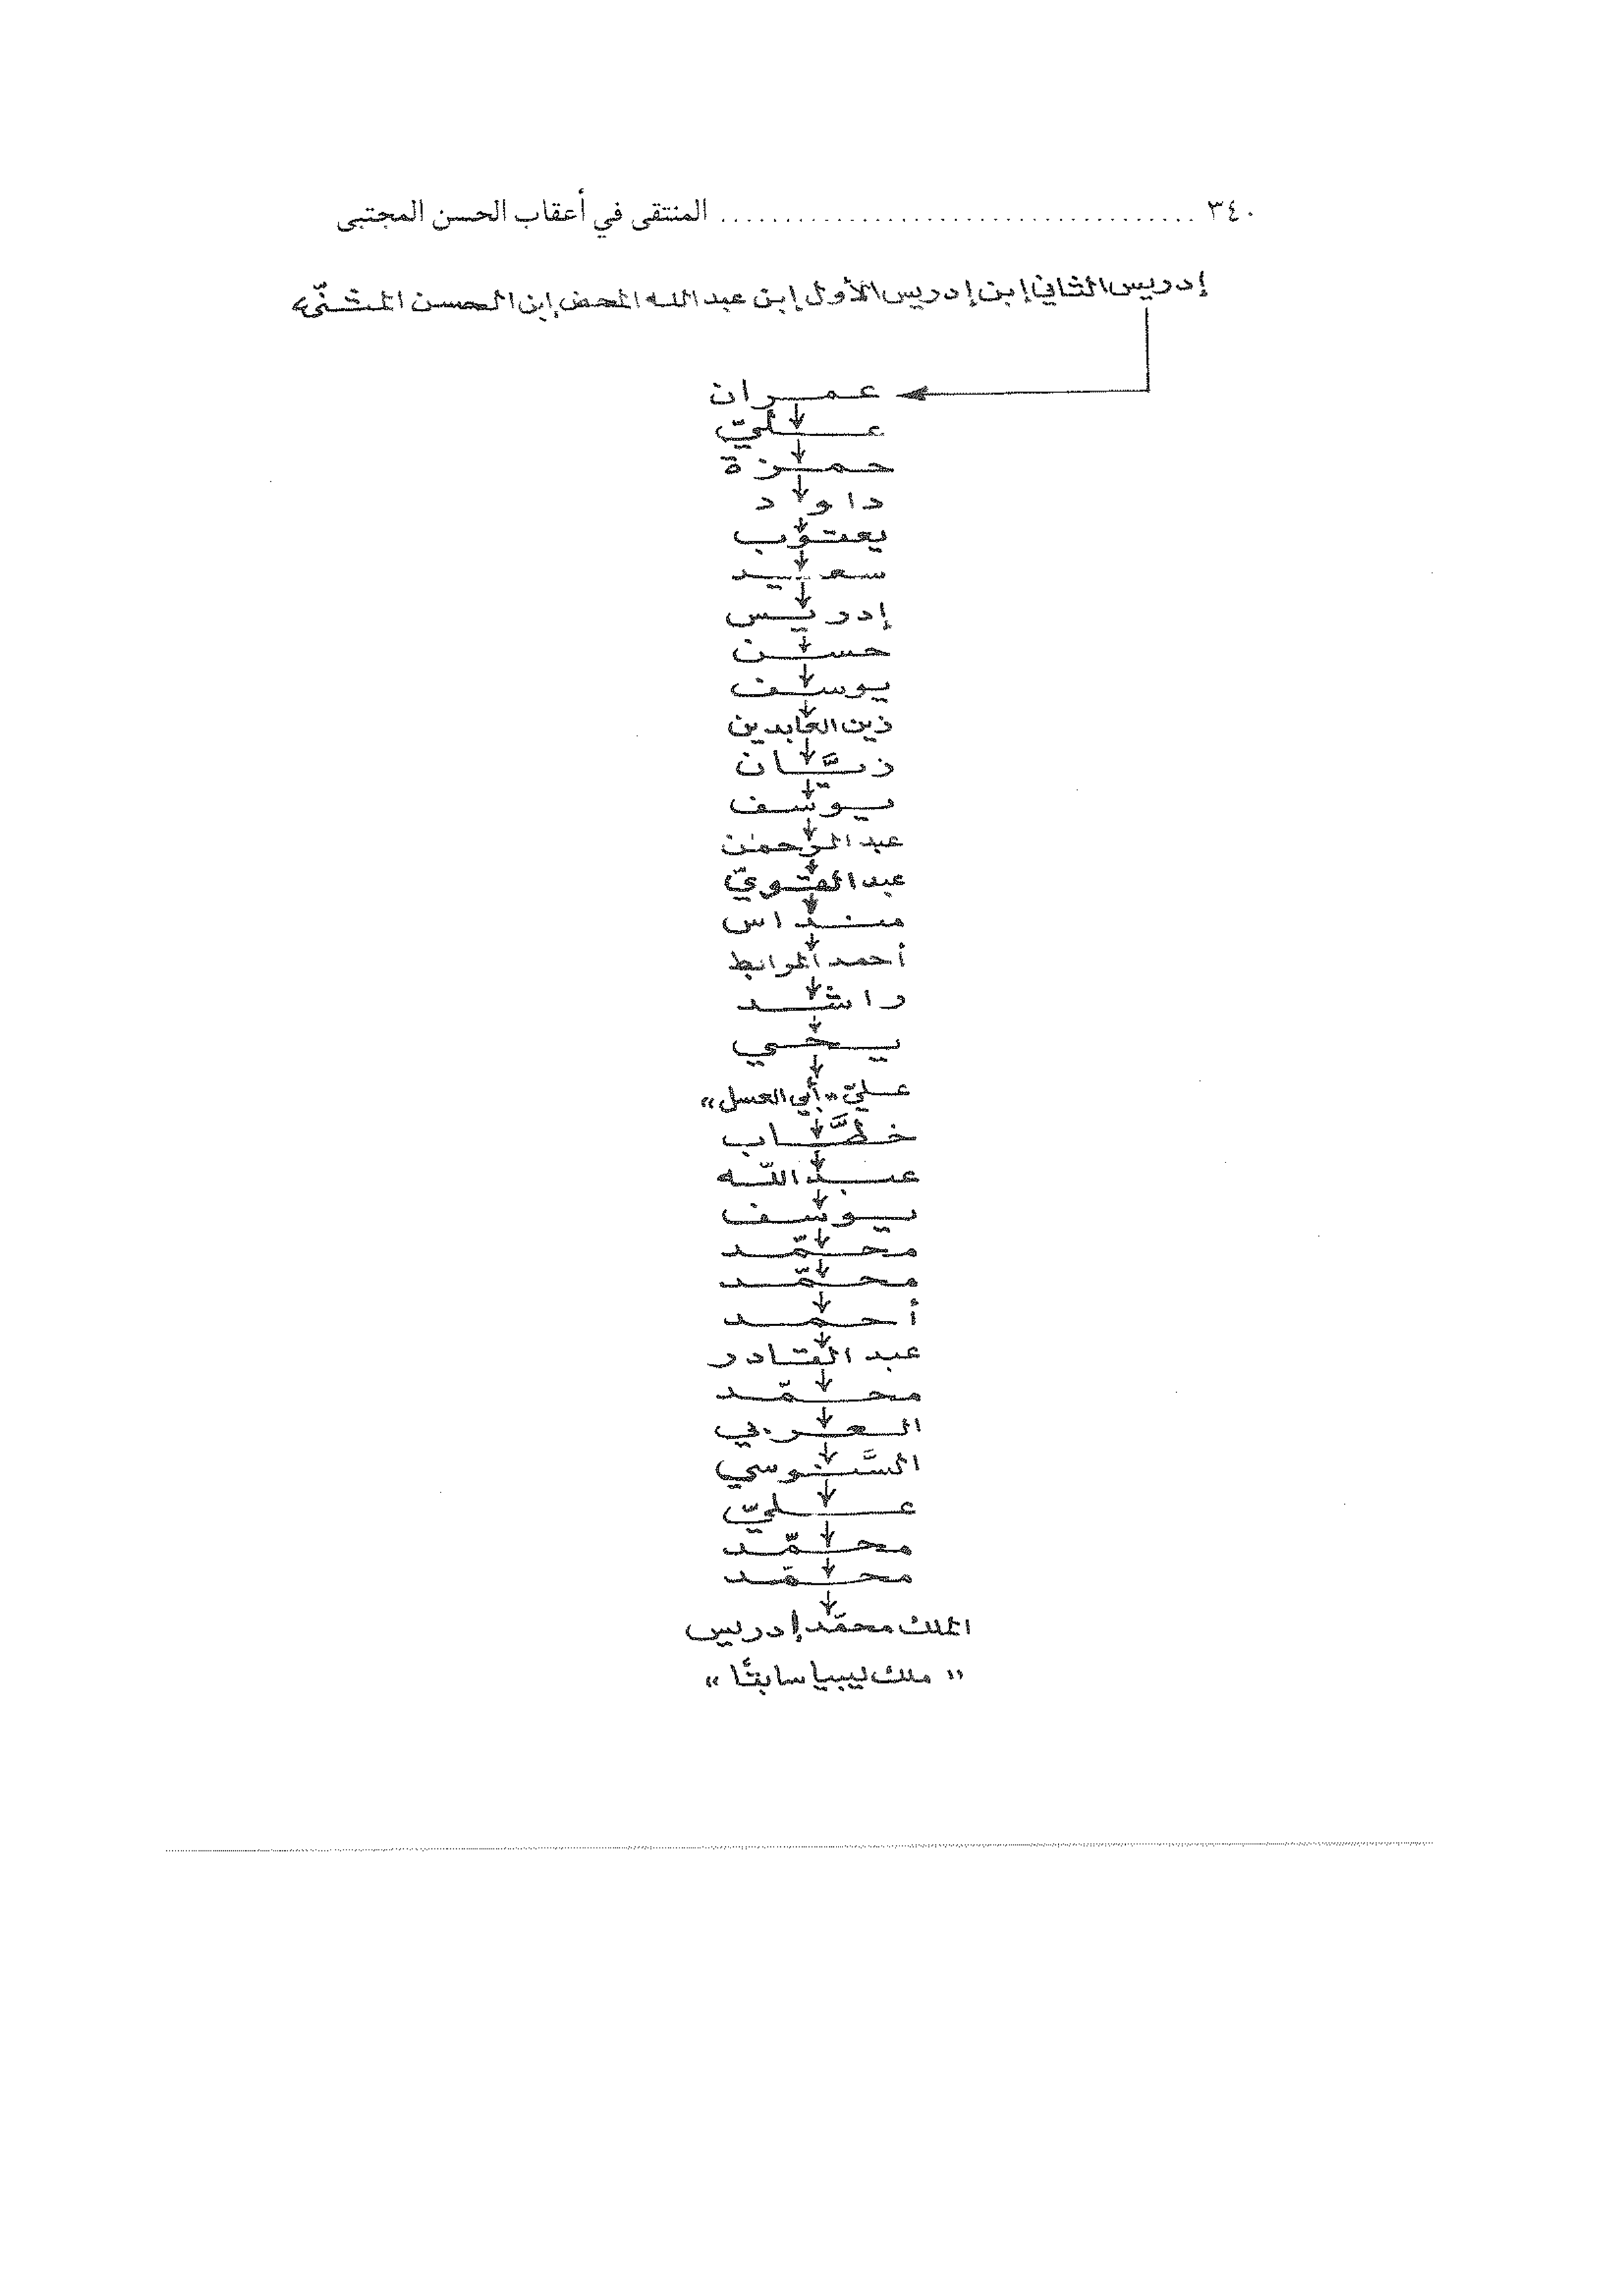 ٣٤٠ ........................................ المنتقى في أعقاب الحسن المجتبى
إدريس الثاني إبن إدريس الأول إبن عبد الله المحض إبن الحسن المثنّى
عمران
عليّ
حمزة
داود
يعقوب
سعيد
إدريس
حسن
يوسف
زين العابدين
زيَّان
يوسف
عبد الرحمن
عبد القويّ
منداس
أحمد المرابط
راشد
يحي
عليّ «أبي العسل»
خطَّاب
عبد اللّه
يوسف
محمّد
محمّد
أحمد
عبد القادر
محمّد
العربي
السَّنوسي
عليّ
محمّد
محمّد
الملك محمّد إدريس
« ملك ليبيا سابقًا »